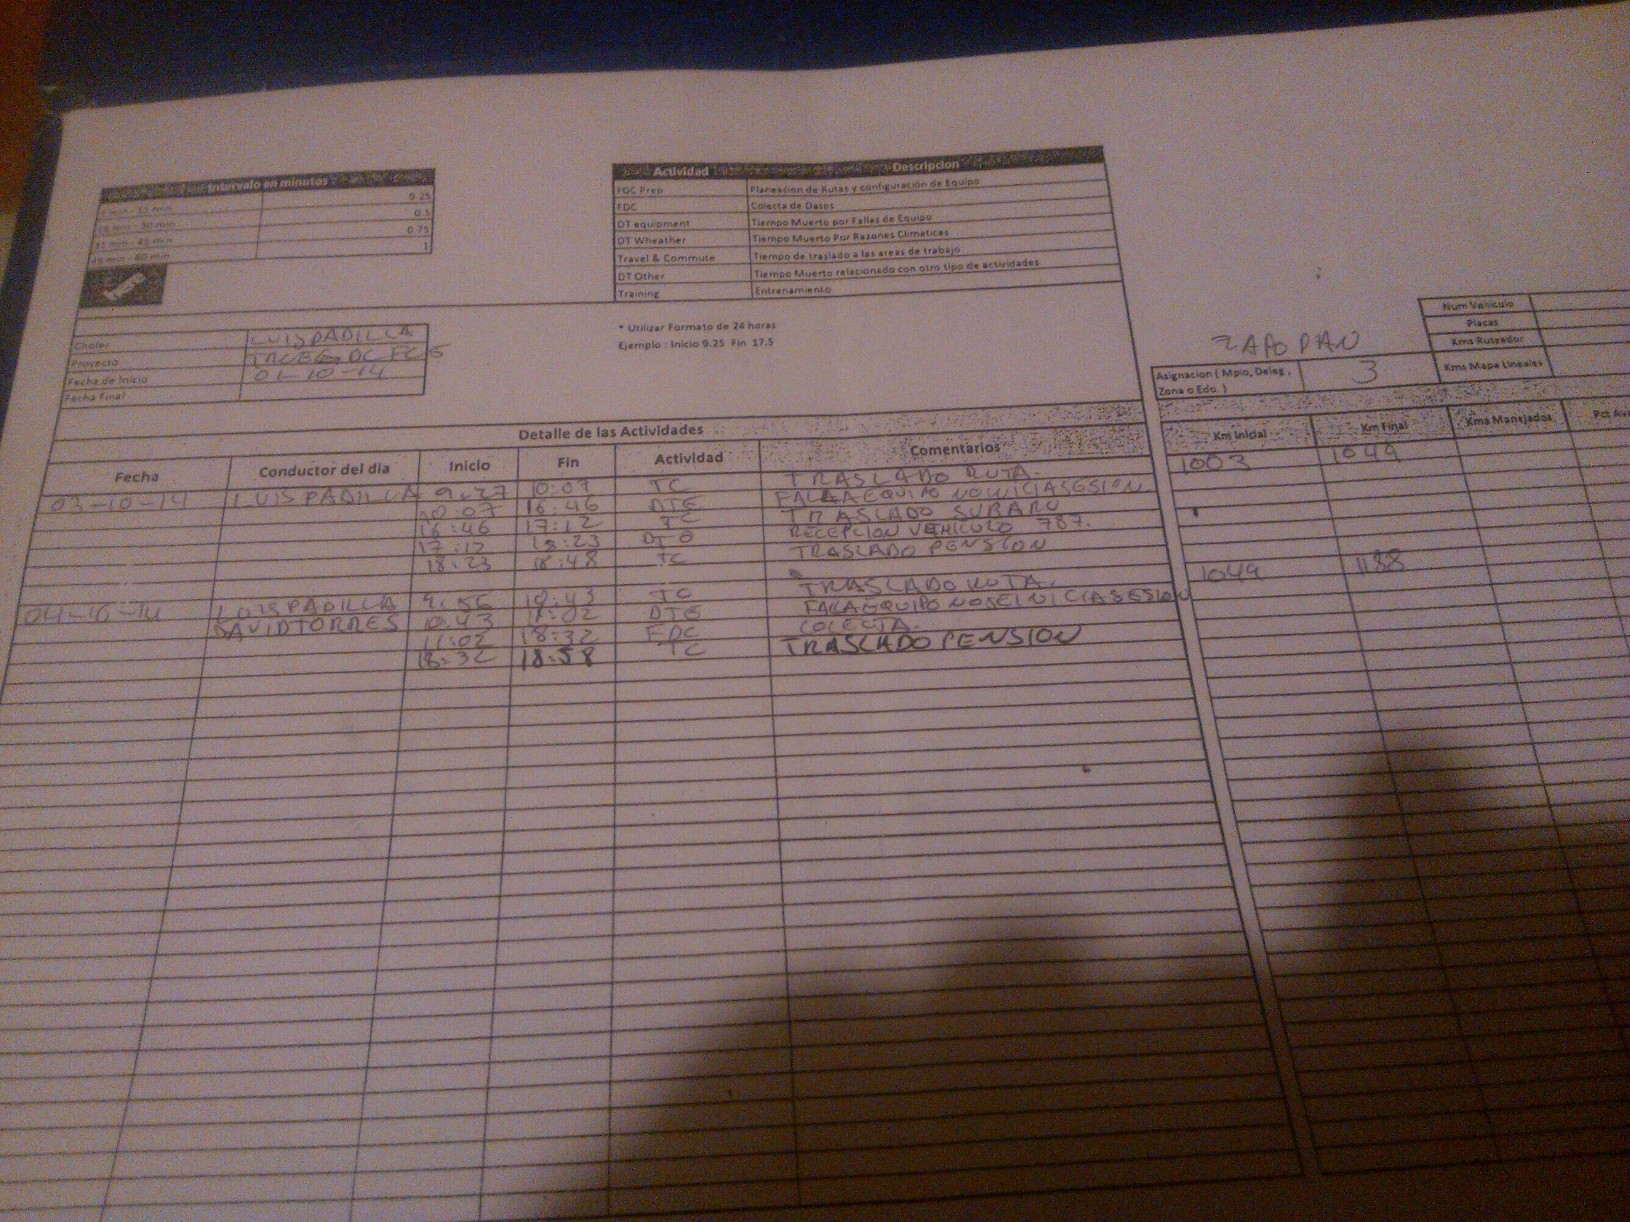 Intervalo en minutos
0.25
0.5
0.75
45 min - 60 min 1
Actividad Descripcion
FDC Prep Planeacion de Rutas y configuración de Equipo
FDC Colecta de Datos
DT equipment Tiempo Muerto por Fallas de Equipo
DT Wheather Tiempo Muerto Por Razones Climaticas
Travel & Commute Tiempo de traslado a las areas de trabajo
DT Other Tiempo Muerto relacionado con otro tipo de actividades
Training Entrenamiento
* Utilizar Formato de 24 horas
Ejemplo : Inicio 9.25 Fin 17.5
Chofer LUIS PADILLA
Proyecto
Fecha de Inicio 01-10-14
Fecha Final
ZAPOPAN
Asignacion ( Mpio, Deleg , Zona o Edo. ) 3
Num Vehiculo
Placas
Kms Ruteador
Kms Mapa Lineales
Detalle de las Actividades
Fecha Conductor del dia Inicio Fin Actividad Comentarios Km Inicial Km Final Kms Manejados Pct
03-10-14 LUIS PADILLA 9:27 10:07 TC TRASLADO RUTA. 1003 1049
10:07 16:46 DTE FALLA EQUIPO NO INICIA SESION
16:46 17:12 TC TRASLADO SUBARU
17:12 18:23 DTO RECEPCION VEHICULO 787.
18:23 18:48 TC TRASLADO PENSION
04-10-14 LUIS PADILLA 9:56 10:43 TC TRASLADO RUTA. 1049 1188
DAVID TORRES 10:43 11:02 DTE FALLA EQUIPO NO SE INICIA SESION
11:02 18:32 FDC COLECTA.
18:32 18:58 TC TRASLADO PENSION